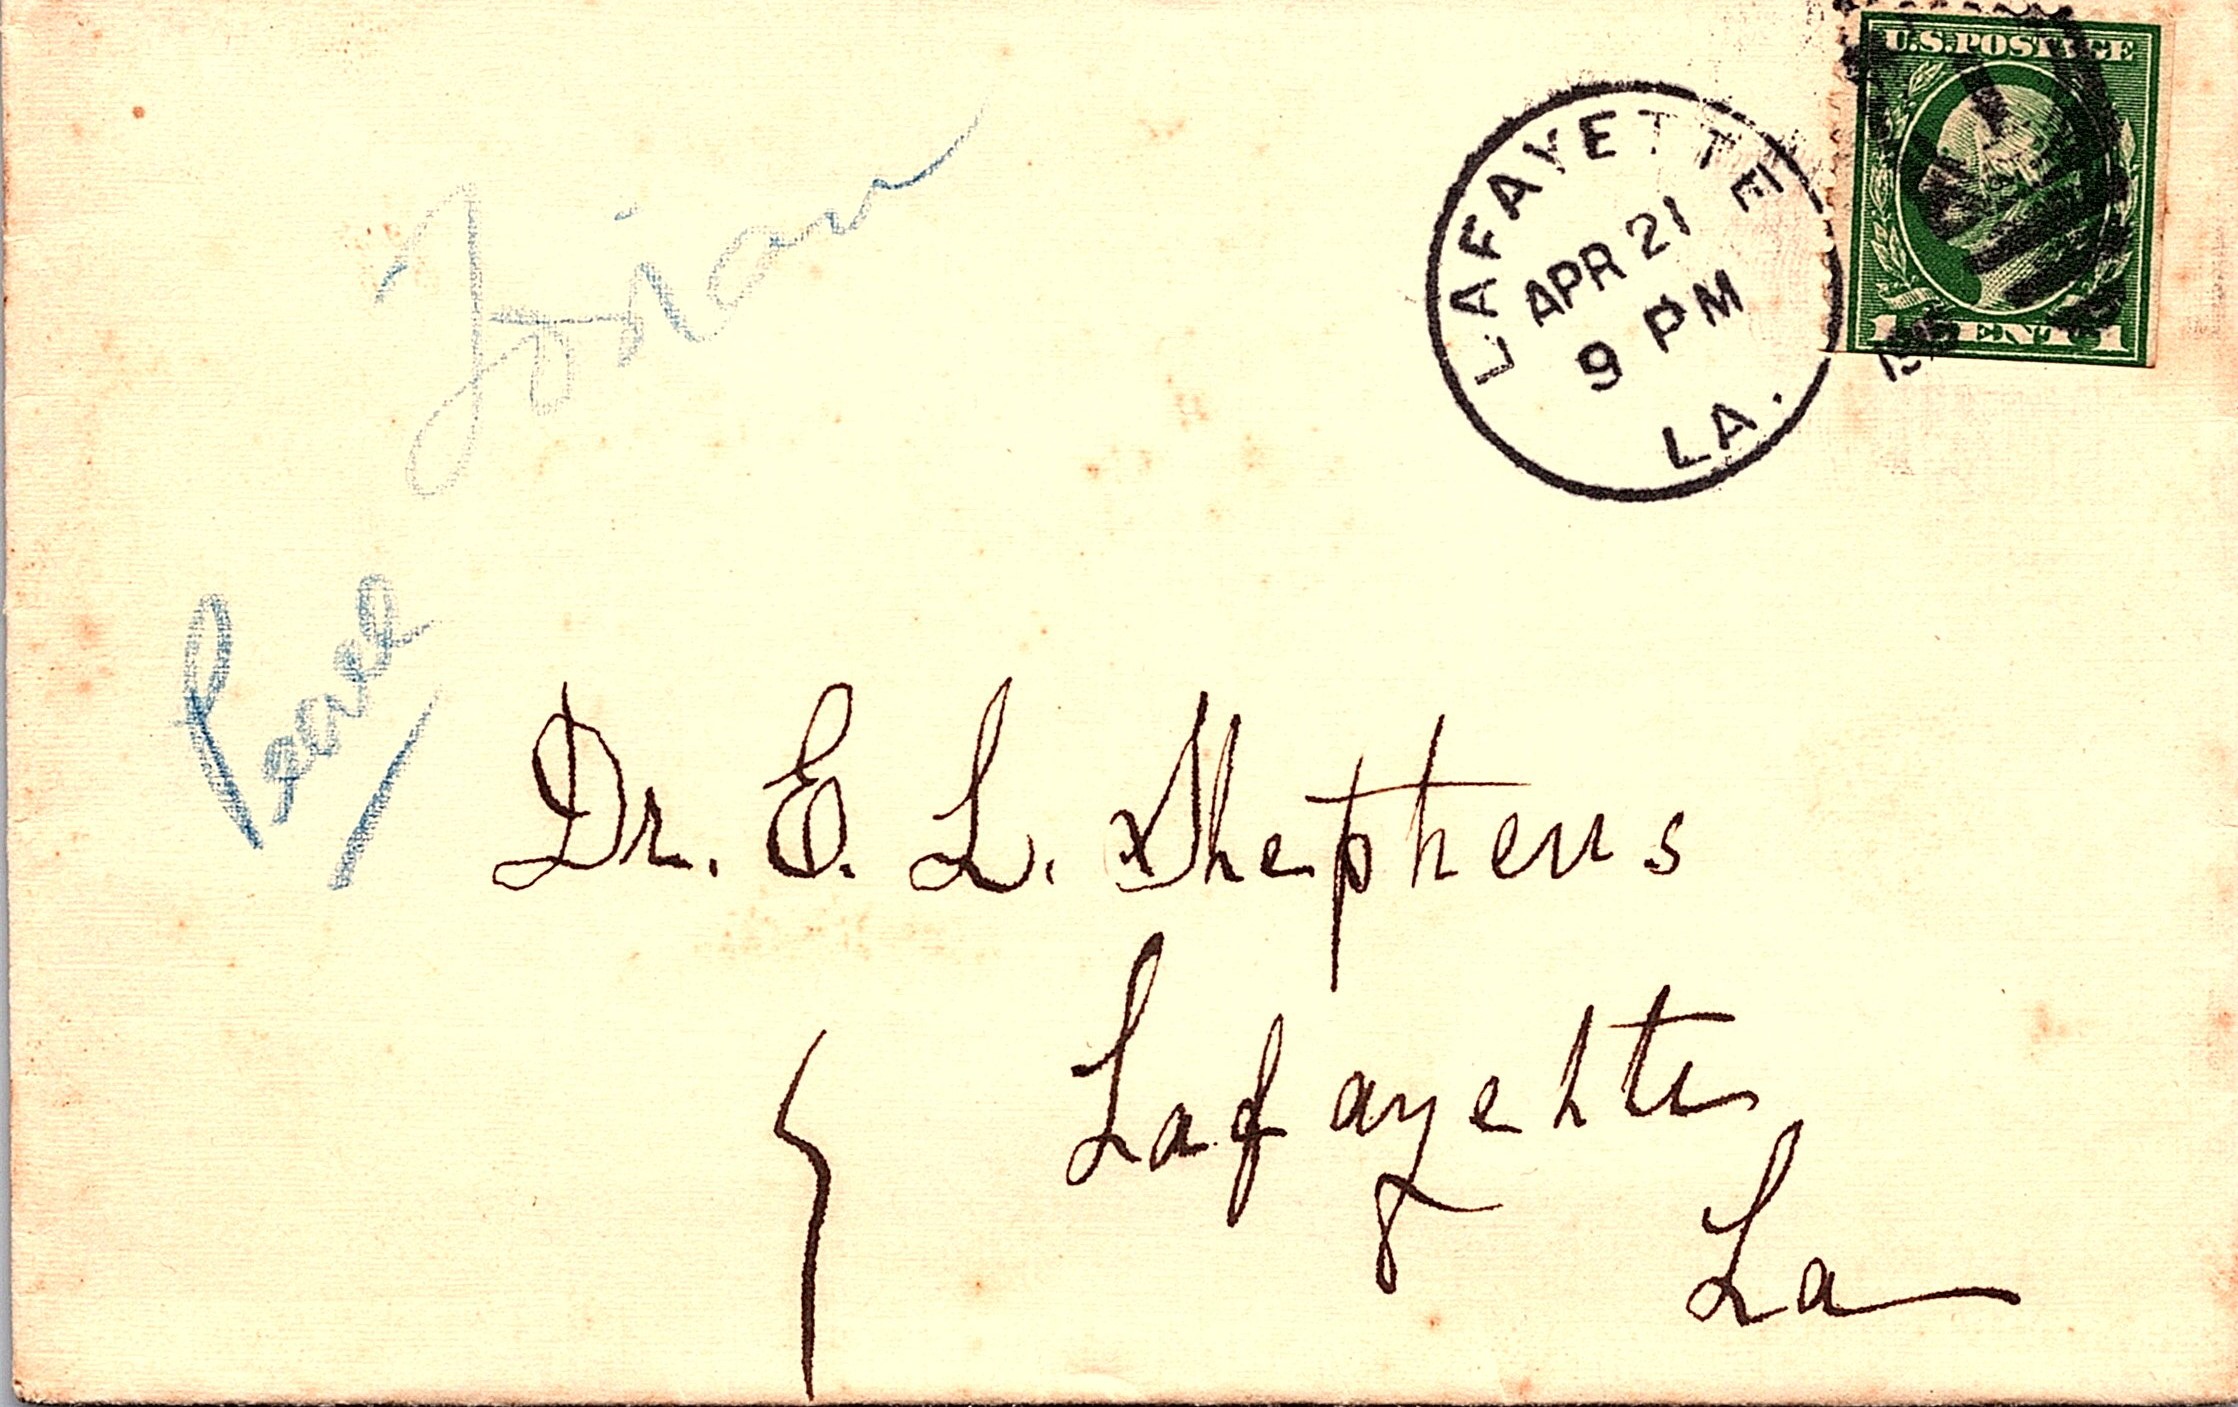 U.S. POSTAGE
1 CENT 1
LAFAYETTE
APR 21
9 PM
LA.
Save
Dr. E. L. Stephens
Lafayette
La